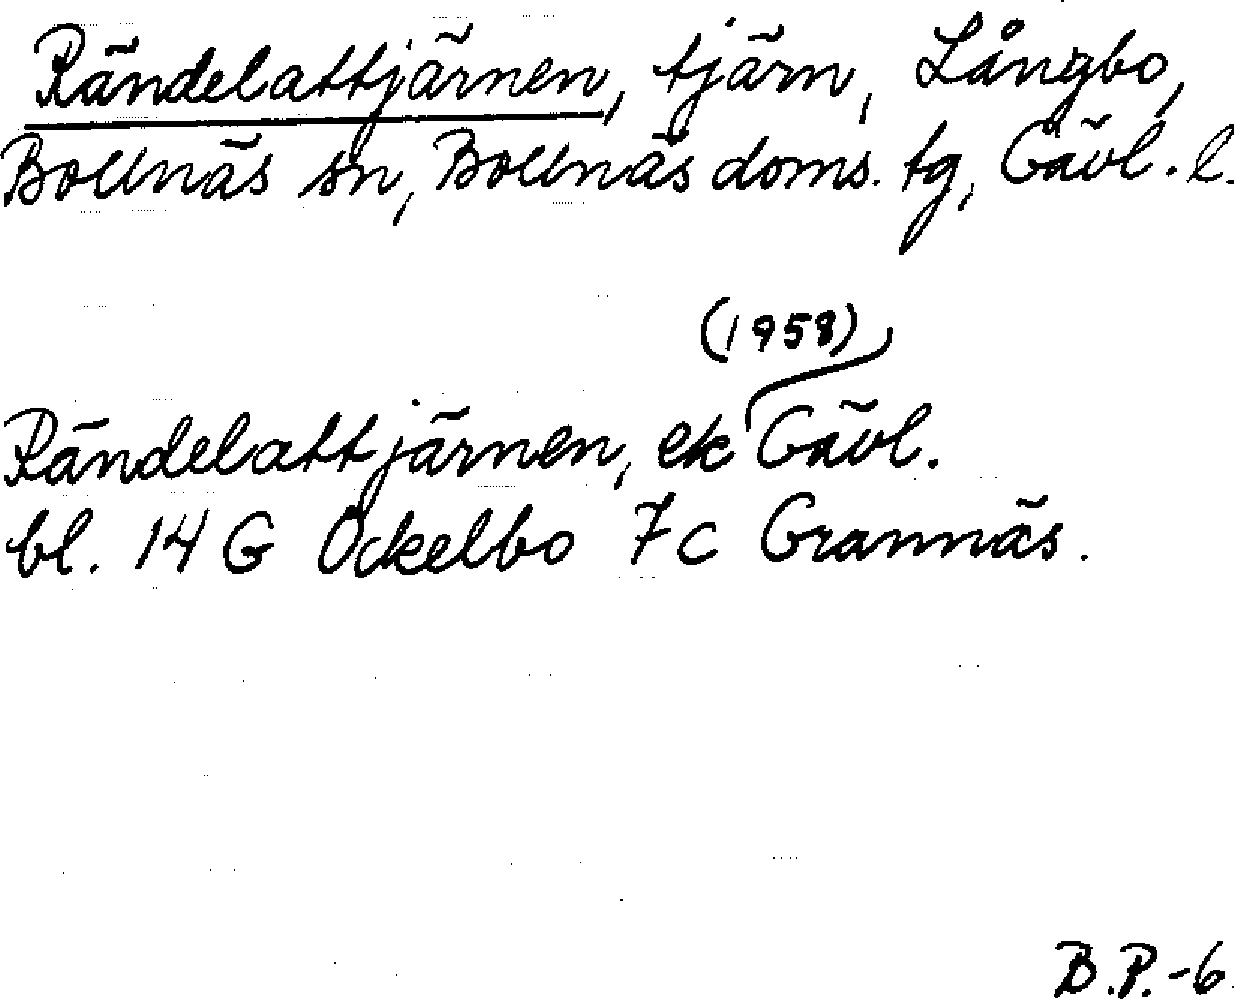 Rändelattjärnen, tjärn, Långbo,
Bollnäs sn, Bollnäs doms. tg, Gävl. l.
(1958)
Rändelattjärnen, ek Gävl.
bl. 14 G Ockelbo 7c Grannäs.
B.P.-6